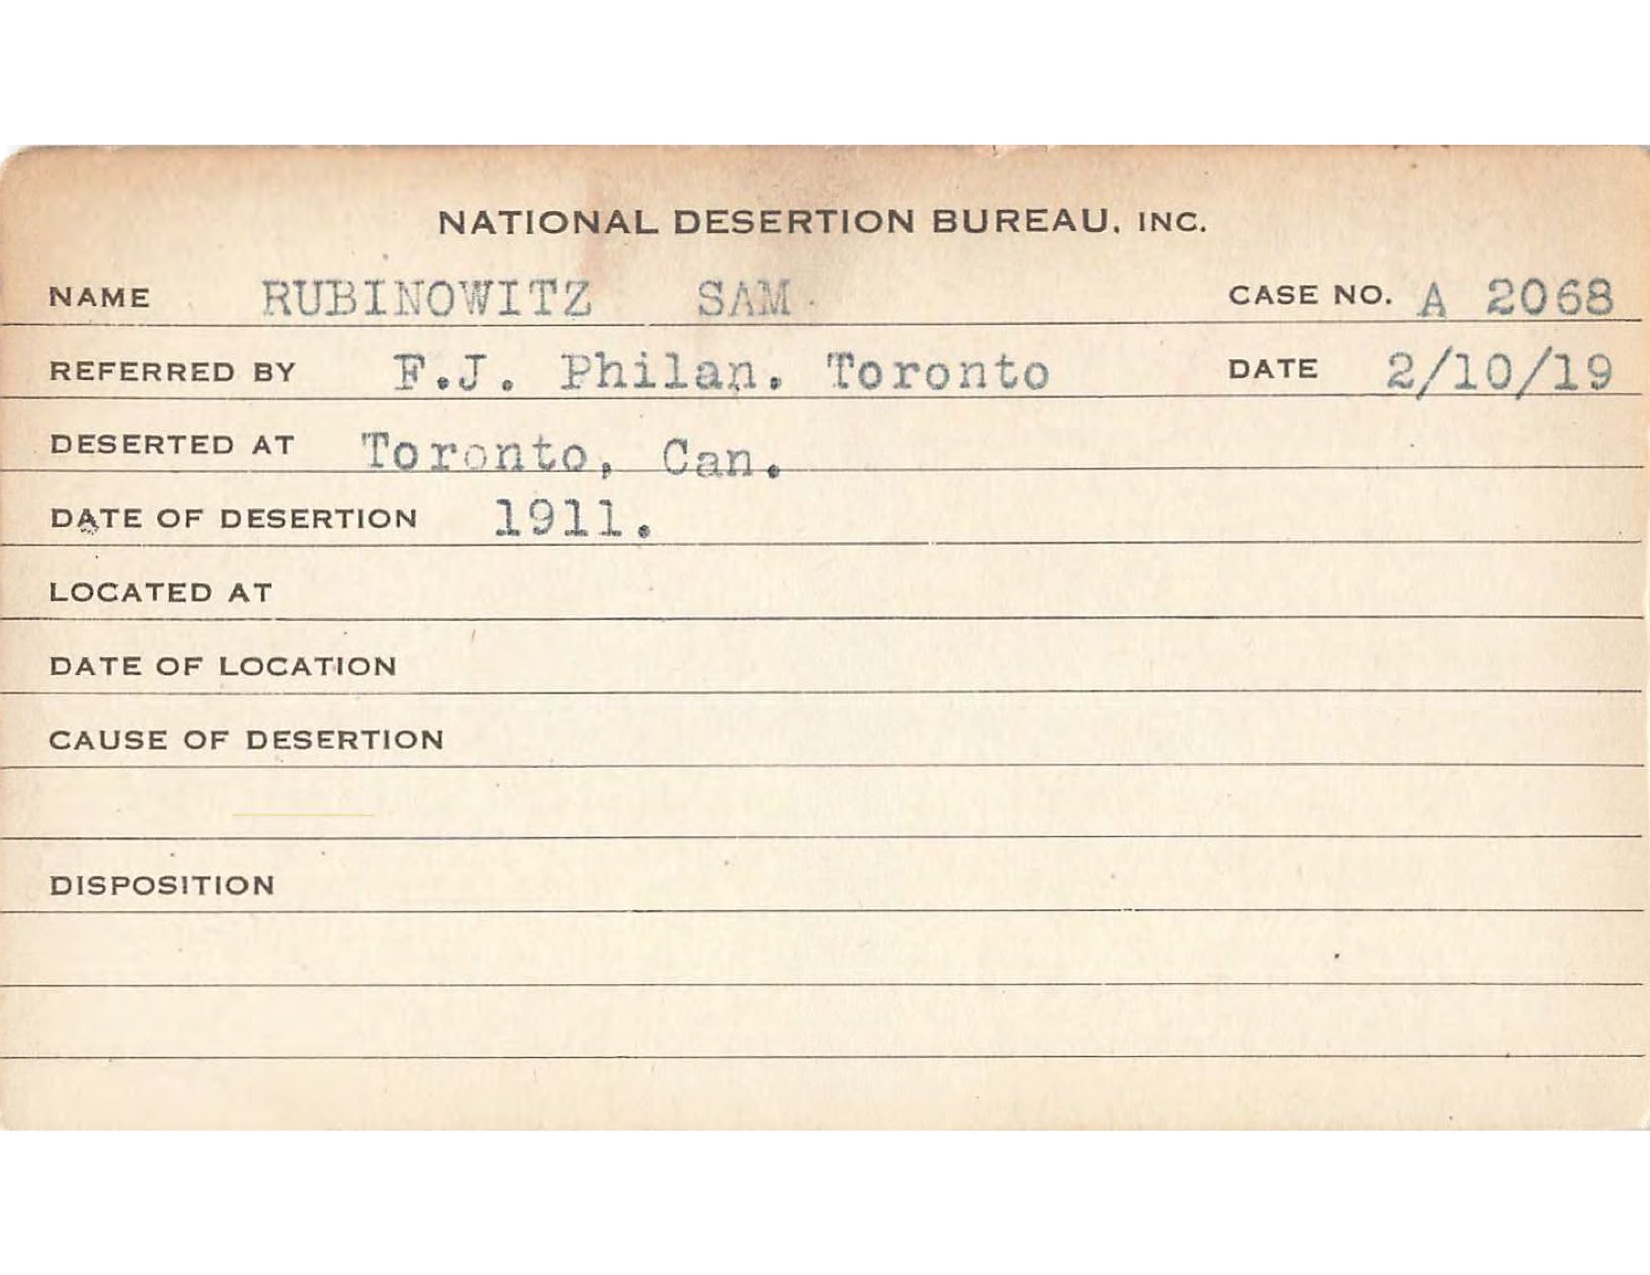 NATIONAL DESERTION BUREAU, INC.
NAME RUBINOWITZ SAM CASE NO. A 2068
REFERRED BY F.J. Philan. Toronto DATE 2/10/19
DESERTED AT Toronto, Can.
DATE OF DESERTION 1911.
LOCATED AT
DATE OF LOCATION
CAUSE OF DESERTION
DISPOSITION